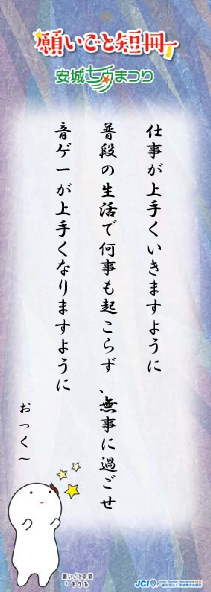 願いごと短冊
安城七夕まつり
仕事が上手くいきますように
普段の生活で何事も起こらず、無事に過ごせ
音ゲーが上手くなりますように
おっく～
願いごと短冊
JCI